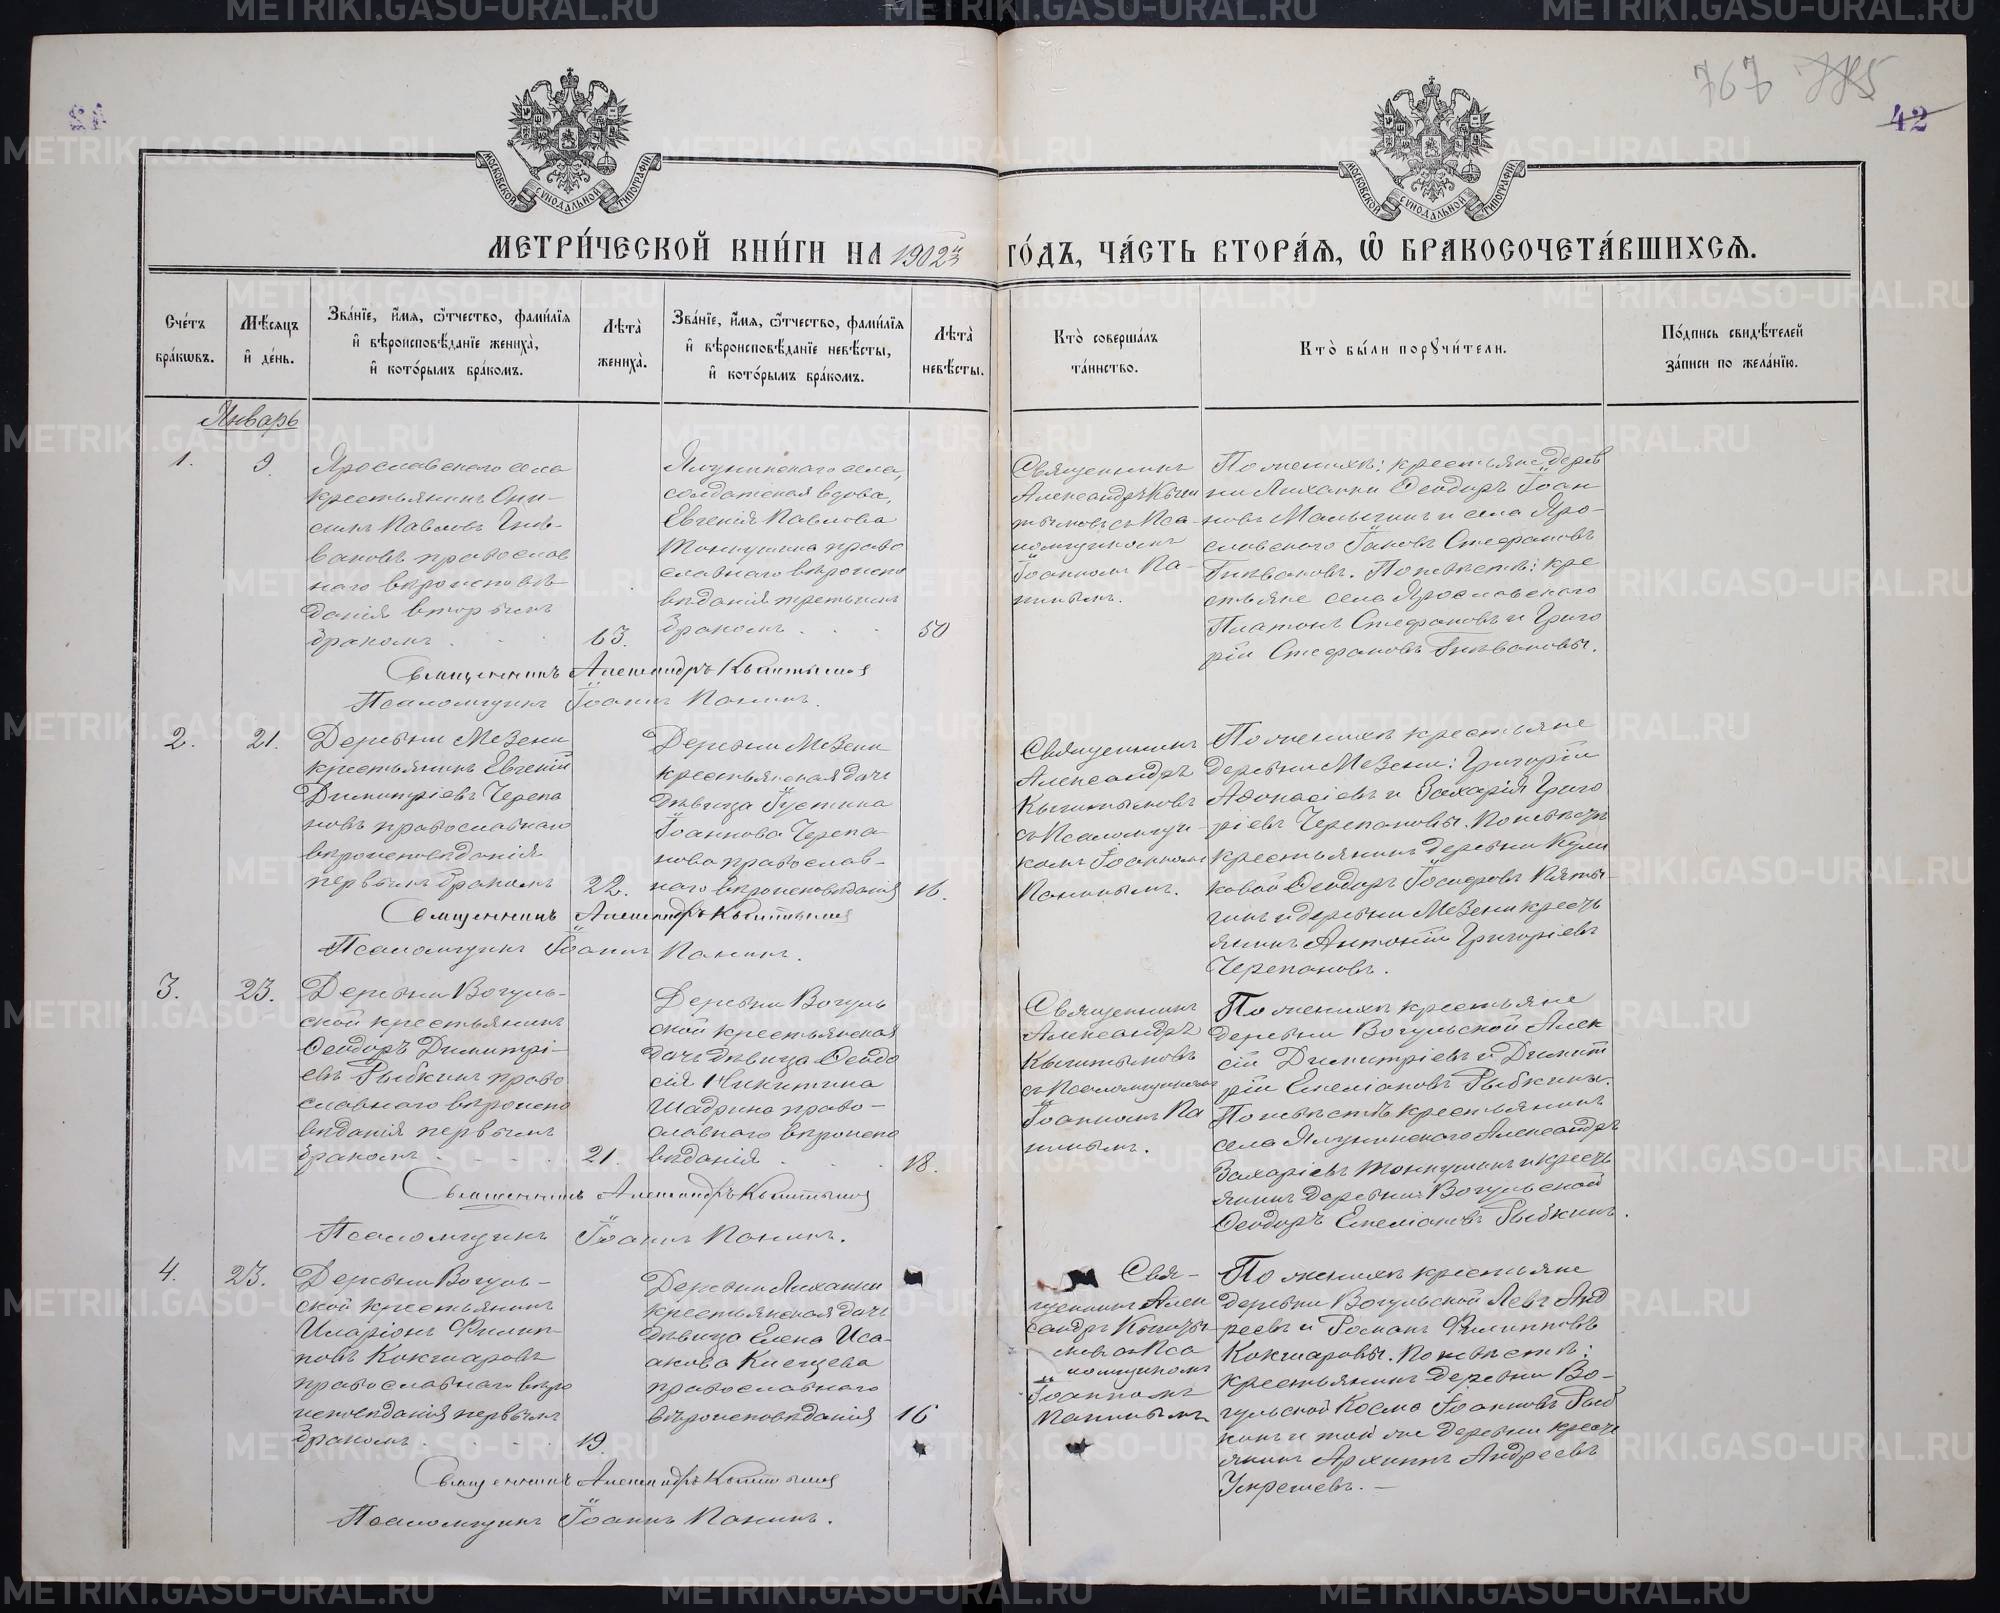 767 775
42
МОСКОВСКОЙ СУНОДАЛЬНОЙ ТИПОГРАФІИ
МОСКОВСКОЙ СУНОДАЛЬНОЙ ТИПОГРАФІИ
МЕТРИ́ЧЕСКОЙ КНИ́ГИ НА 1902й ГО́ДЪ, ЧА́СТЬ ВТОРА́Я, Ѽ БРАКОСОЧЕТА́ВШИХСЯ.
Сче́тъ
бра́кѡвъ.
Мѣ́сяцъ
и҆ де́нь.
Зва́нїе, и҆́мя, ѻ҆́тчество, фами́лїя
и҆ вѣроисповѣ́данїе жениха̀,
и҆ кото́рымъ бра́комъ.
Лѣта̀
жениха̀.
Зва́нїе, и҆́мя, ѻ҆́тчество, фами́лїя
и҆ вѣроисповѣ́данїе невѣ́сты,
и҆ кото́рымъ бра́комъ.
Лѣта̀
невѣ́сты.
Кто̀ соверша́лъ
та́инство.
Кто̀ бы́ли порꙋчи́тели.
По́дпись свидѣ́телей
за́писи по жела́нїю.
Январь
1.
9.
Ярославскаго села
крестьянинъ Они-
симъ Павловъ Гнѣ-
вановъ православ
наго вѣроисповѣ-
данія вторымъ
бракомъ . . .
63.
Ялунинскаго села,
солдатская вдова,
Евгенія Павлова
Тонкушина право
славнаго вѣроиспо
вѣданія третьимъ
бракомъ . . .
50
Священникъ
Александръ Кычи
тымовъ съ Пса-
ломщикомъ
Іоанномъ Па-
нинымъ.
По женихѣ: крестьяне дерев
ни Лиханки Ѳеодоръ Іоан
новъ Малыгинъ и села Яро-
славскаго Іаковъ Стефановъ
Гнѣвановъ. По невѣстѣ: кре
стьяне села Ярославскаго
Платонъ Стефановъ и Григо
рій Стефановъ Гнѣвановы.
Священникъ Александръ Кычитымов
Псаломщикъ Іоаннъ Панинъ.
2.
21.
Деревни Мезени
крестьянинъ Евгеній
Димитріевъ Черепа
новъ православнаго
вѣроисповѣданія
первымъ бракомъ
22.
Деревни Мезени
крестьянская дочь
дѣвица Іустина
Іоаннова Черепа
нова православ-
наго вѣроисповѣданія
16.
Священникъ
Александръ
Кычитымовъ
съ Псаломщи-
комъ Іоанномъ
Панинымъ.
По женихѣ крестьяне
деревни Мезени: Григорій
Аѳонасіевъ и Захарій Григо
ріевъ Черепановы. По невѣстѣ
крестьянинъ деревни Кули
ковой Ѳеодоръ Іосифовъ Пяты-
гинъ и деревни Мезени кресть
янинъ Антоній Григоріевъ
Черепановъ.
Священникъ Александръ Кычитымов
Псаломщикъ Іоаннъ Панинъ.
3.
23.
Деревни Вогуль-
ской крестьянинъ
Ѳеодоръ Димитрі-
евъ Рыбкинъ право
славнаго вѣроиспо
вѣданія первымъ
бракомъ . . . .
21.
Деревни Вогуль
ской крестьянская
дочь дѣвица Ѳеодо
сія Никитина
Шадрина право-
славнаго вѣроиспо
вѣданія . . .
18.
Священникъ
Александръ
Кычитымовъ
съ Псаломщикомъ
Іоанномъ Па
нинымъ.
По женихѣ крестьяне
деревни Вогульской Алек
сій Димитріевъ и Димит
рій Емеліановъ Рыбкины.
По невѣстѣ крестьянинъ
села Ялунинскаго Александръ
Захаріевъ Тонкушинъ и кресть
янинъ деревни Вогульской
Ѳеодоръ Емеліановъ Рыбкинъ.
Священникъ Александръ Кычитымов
Псаломщикъ Іоаннъ Панинъ.
4.
23.
Деревни Вогуль-
ской крестьянинъ
Иларіонъ Филип-
повъ Кокшаровъ
православнаго вѣро
исповѣданія первымъ
бракомъ . . . .
19.
Деревни Лиханки
крестьянская дочь
дѣвица Елена Иса-
акова Клещева
православнаго
вѣроисповѣданія
16
Свя-
щенникъ Алек
сандръ Кычиты-
мовъ съ Пса
ломщикомъ
Іоанномъ
Панинымъ
По женихѣ крестьяне
деревни Вогульской Левъ Анд
реевъ и Романъ Филипповъ
Кокшаровы. По невѣстѣ:
крестьянинъ деревни Во-
гульской Косма Іоанновъ Рыб
кинъ и той же деревни кресть
янинъ Архипъ Андреевъ
Укрешевъ. —
Священникъ Александръ Кычитымов
Псаломщикъ Іоаннъ Панинъ.
METRIKI.GASO-URAL.RU